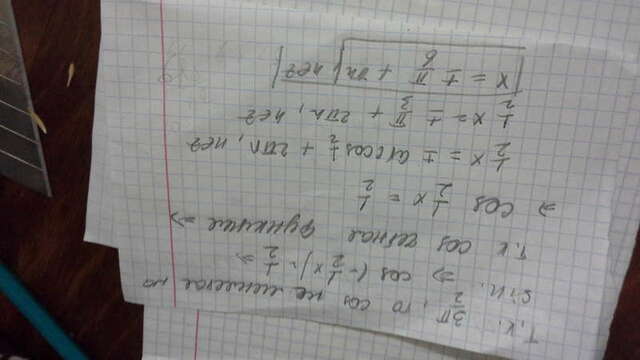 Т.к. 3π/2, то cos не меняется на
sin. ⇒ cos (-1/2 x) = 1/2 ⇒
Т.к cos четная функция ⇒
⇒ cos 1/2 x = 1/2
1/2 x = ± arccos 1/2 + 2πn, n∈z
1/2 x = ± π/3 + 2πn, n∈z
x = ± π/6 + πn, n∈z